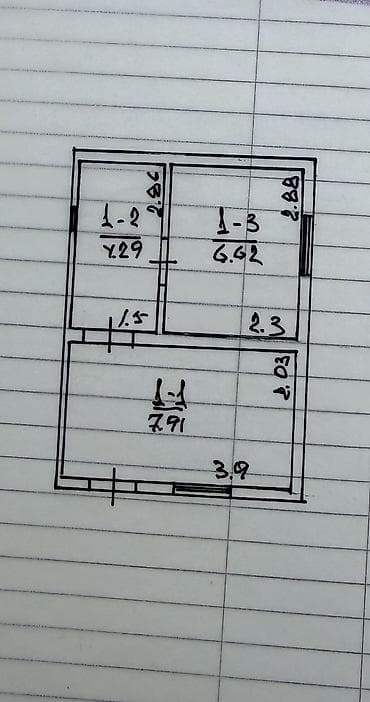 1-2
4.29
2.86
1-3
6.62
2.88
1.5
2.3
1-1
7.91
2.03
3.9